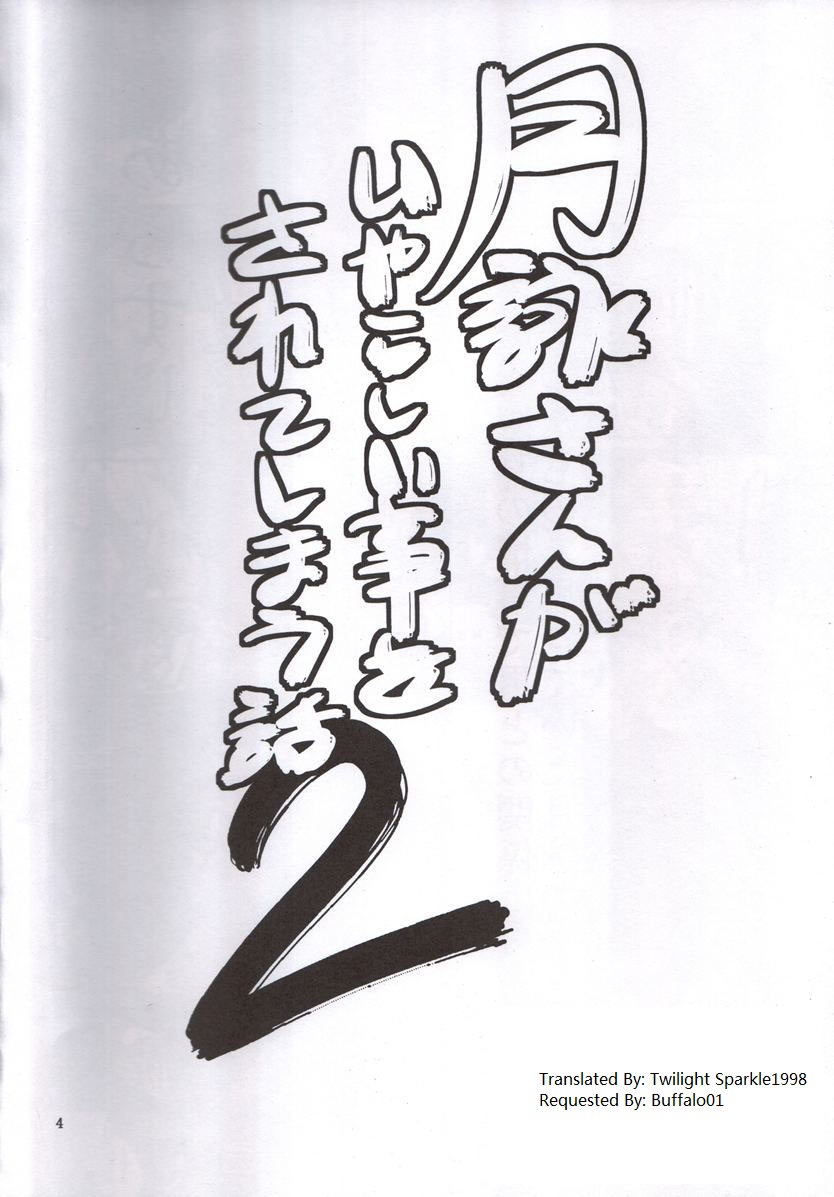 月詠さんが
いやらしい事を
されてしまう話
2
Translated By: Twilight Sparkle1998
Requested By: Buffalo01
4